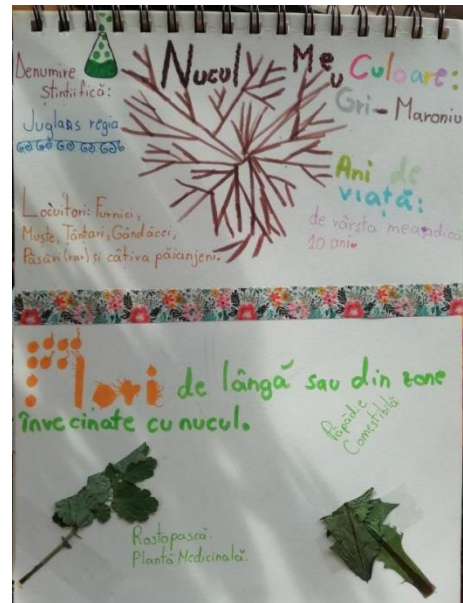 Nucul Meu
Denumire
științifică:
Juglans regia
Culoare:
Gri - Maroniu
Ani de
viață:
de vârsta mea, adică
10 ani.
Locuitori: Furnici,
Muște, Țântari, Gândăcei,
Păsări (rar) și câțiva păianjeni.
Flori de lângă sau din zone
învecinate cu nucul.
Păpădie
Comestibilă
Rostopască.
Plantă Medicinală.